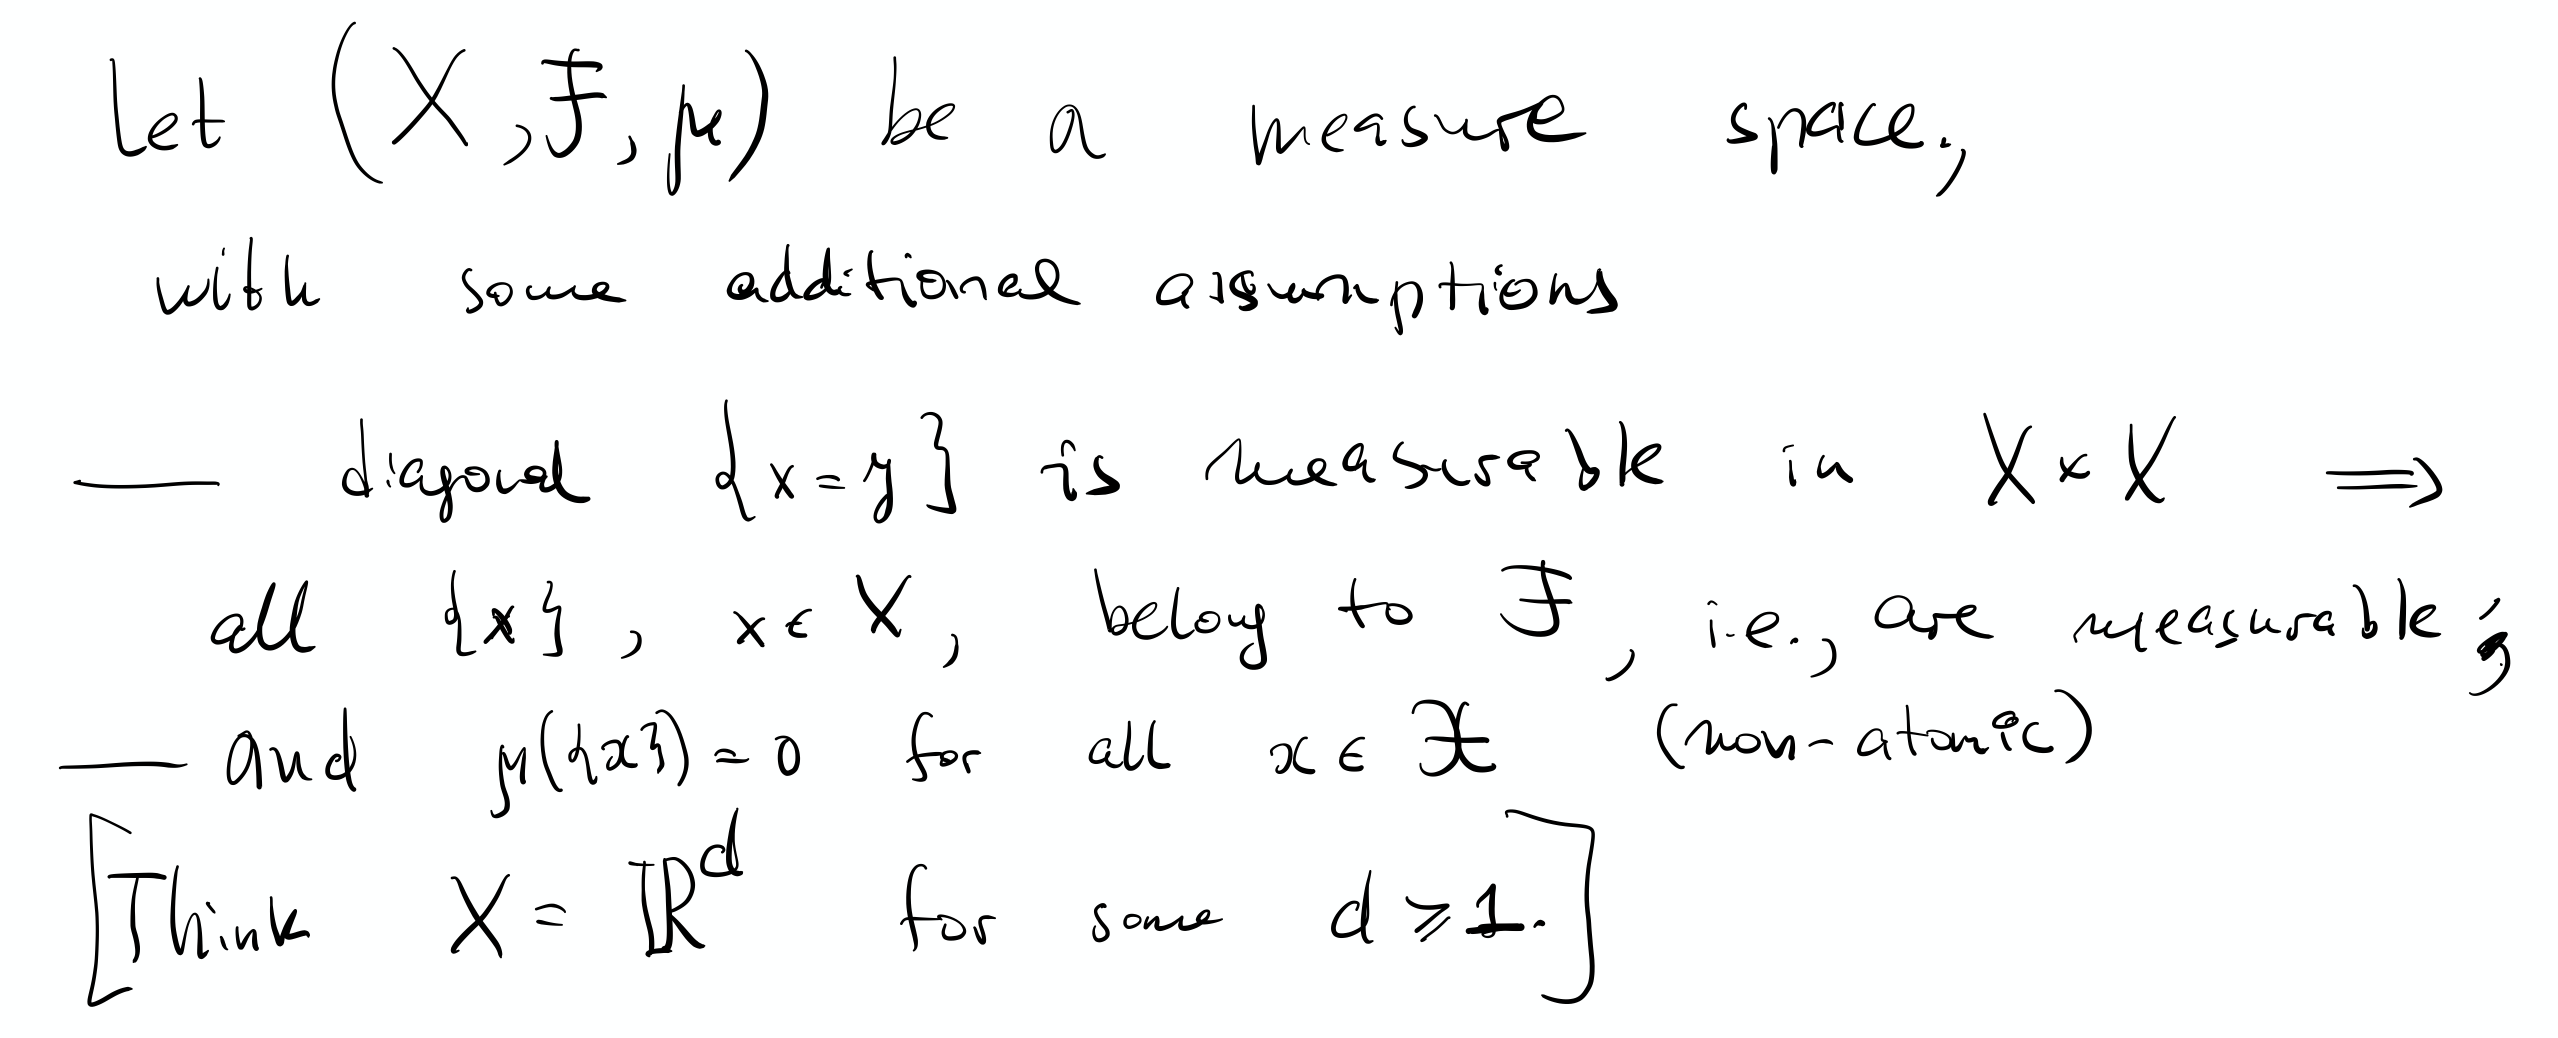 Let (X, ℱ, μ) be a measure space,
with some additional assumptions
— diagonal {x = y} is measurable in X × X ⟹
all {x}, x ∈ X, belong to ℱ, i.e., are measurable;
— and μ({x}) = 0 for all x ∈ X (non-atomic)
[Think X = ℝ^d for some d ⩾ 1.]